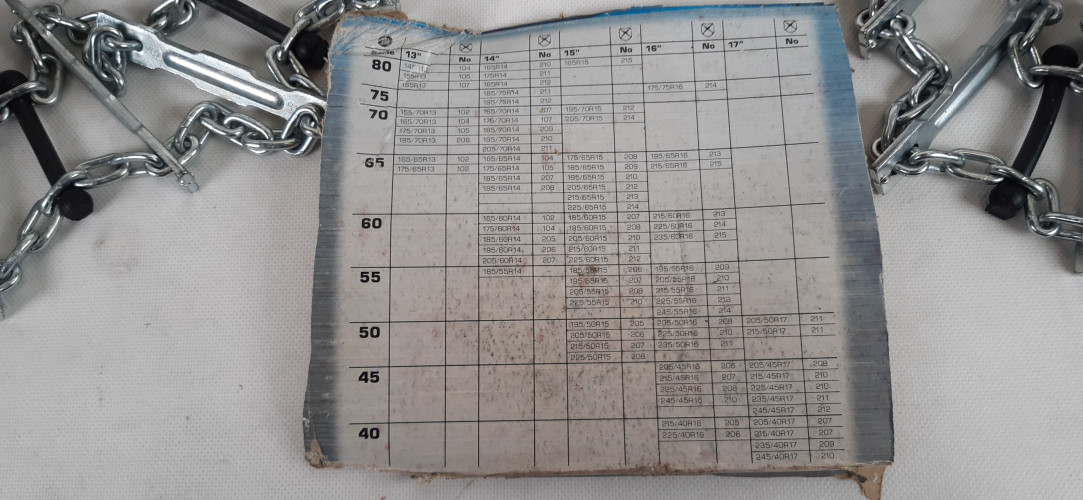 13" No 14" No 15" No 16" No 17" No
80 104 165R14 210 185R15 215
155R13 105 175R14 211
155R13 107 185R14 212
75 185/75R14 211 175/75R16 214
195/75R14 212
70 155/70R13 102 165/70R14 207 195/70R15 212
165/70R13 104 175/70R14 107 205/70R15 214
175/70R13 105 185/70R14 209
185/70R13 206 195/70R14 210
205/70R14 211
65 165/65R13 102 165/65R14 104 175/65R15 208 195/65R16 213
175/65R13 102 175/65R14 105 185/65R15 209 215/65R16 215
185/65R14 207 195/65R15 210
195/65R14 208 205/65R15 212
215/65R15 213
225/65R15 214
60 165/60R14 102 185/60R15 207 215/60R16 213
175/60R14 104 195/60R15 209 225/60R16 214
185/60R14 205 205/60R15 210 235/60R16 215
195/60R14 206 215/60R15 211
205/60R14 207 225/60R15 212
55 185/55R14 185/55R15 206 195/55R16 209
195/55R15 207 205/55R16 210
205/55R15 208 215/55R16 211
225/55R15 210 225/55R16 212
245/55R16 214
50 195/50R15 205 205/50R16 208 205/50R17 211
205/50R15 206 225/50R16 210 215/50R17 211
215/50R15 207 235/50R16 211
225/50R15 208
45 205/45R16 206 205/45R17 208
215/45R16 207 215/45R17 210
225/45R16 208 225/45R17 210
245/45R16 210 235/45R17 211
245/45R17 212
40 215/40R16 205 205/40R17 207
225/40R16 206 215/40R17 207
235/40R17 209
245/40R17 210